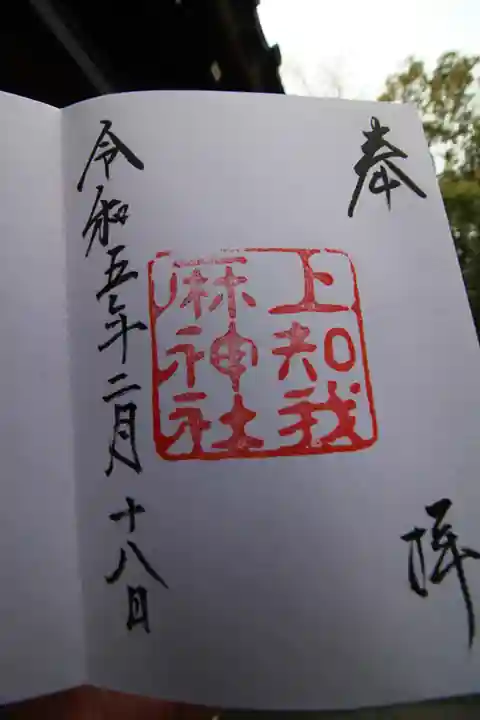 奉
拝
上知我
麻神社
令和五年二月十八日